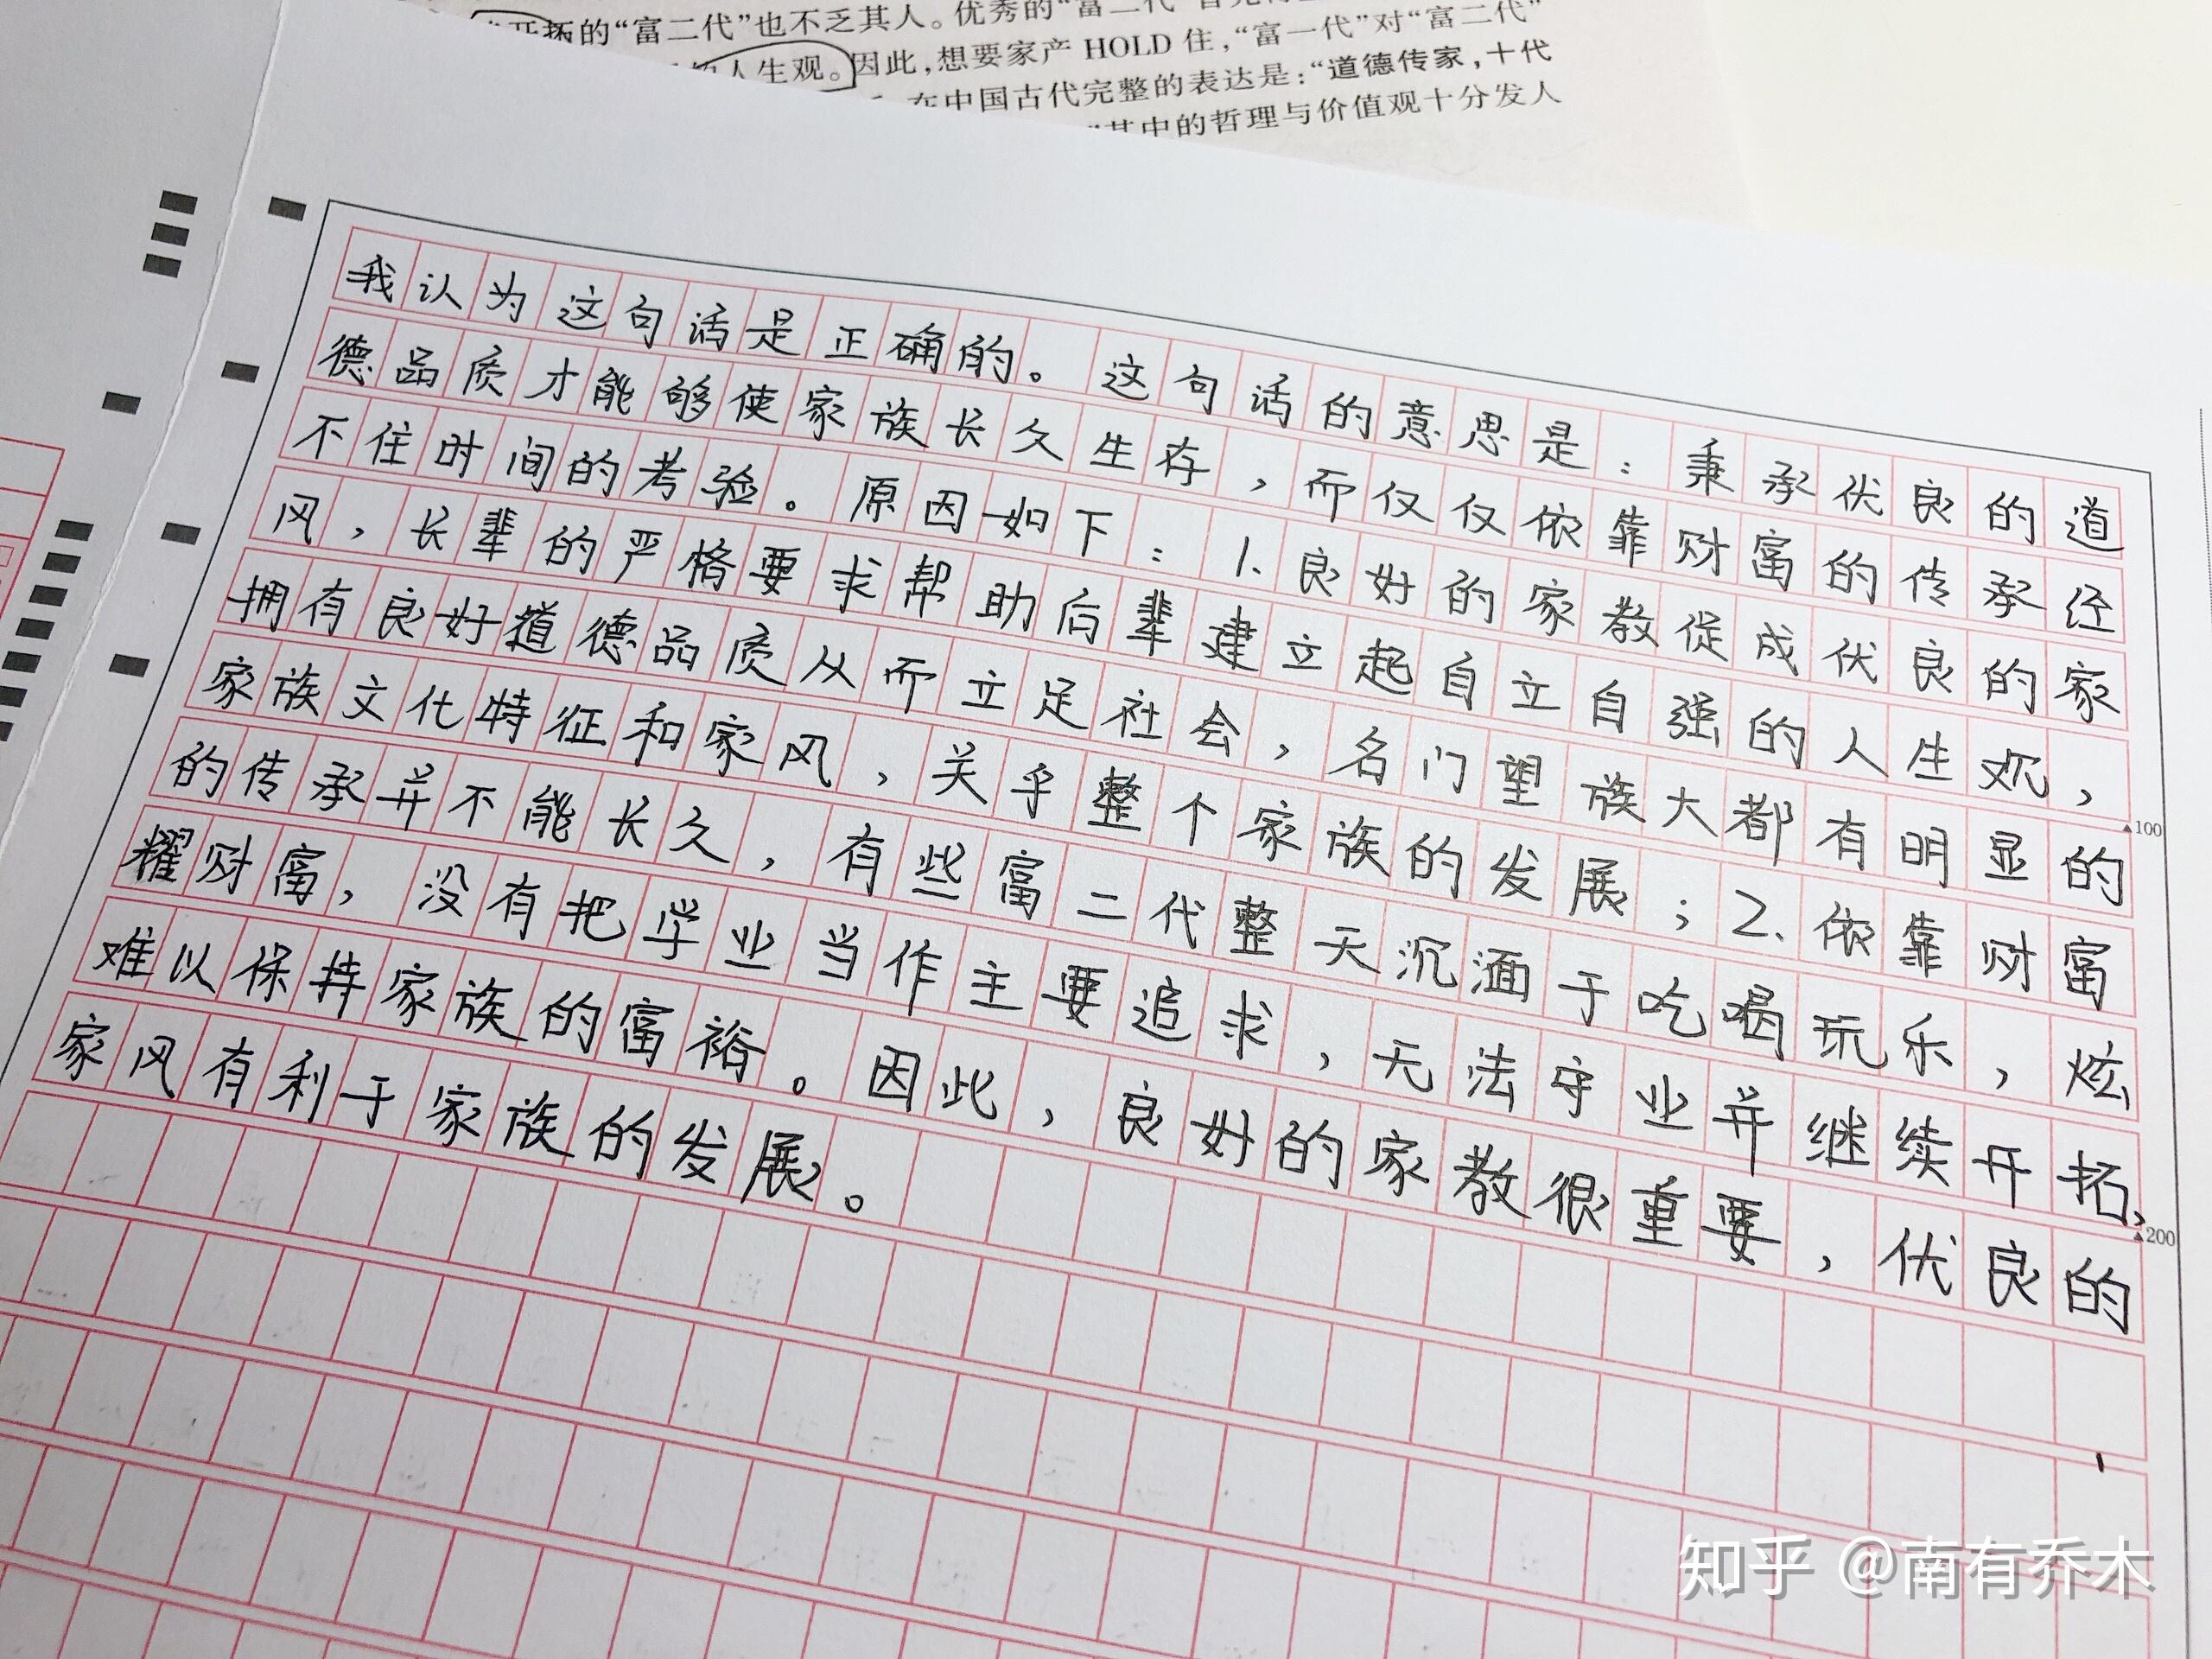 开拓的“富二代”也不乏其人。优秀的“富二代”
人生观。因此,想要家产 HOLD 住,“富一代”对“富二代”
在中国古代完整的表达是:“道德传家,十代
“其中的哲理与价值观十分发人
我认为这句话是正确的。这句话的意思是：秉承优良的道
德品质才能够使家族长久生存，而仅仅依靠财富的传承经
不住时间的考验。原因如下：1.良好的家教促成优良的家
风，长辈的严格要求帮助后辈建立起自立自强的人生观，
100
拥有良好道德品质从而立足社会，名门望族大都有明显的
家族文化特征和家风，关乎整个家族的发展；2.依靠财富
的传承并不能长久，有些富二代整天沉湎于吃喝玩乐，炫
耀财富，没有把学业当作主要追求，无法守业并继续开拓，
200
难以保持家族的富裕。因此，良好的家教很重要，优良的
家风有利于家族的发展。
知乎 @南有乔木